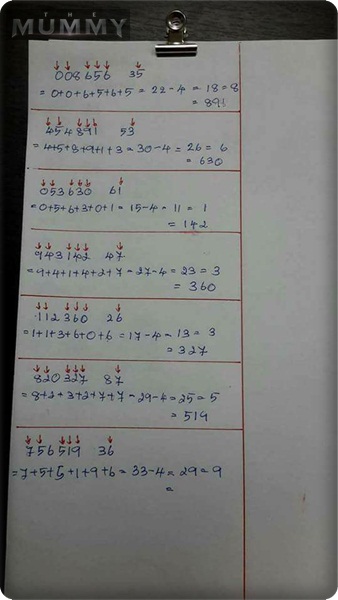 THE
MUMMY
008656 35
= 0+0+6+5+6+5 = 22-4 = 18 = 8
= 891
454891 53
= 4+5+8+9+1+3 = 30-4 = 26 = 6
= 630
053630 61
= 0+5+6+3+0+1 = 15-4 = 11 = 1
= 142
943142 47
= 9+4+1+4+2+7 = 27-4 = 23 = 3
= 360
112360 26
= 1+1+3+6+0+6 = 17-4 = 13 = 3
= 327
820327 87
= 8+2+3+2+7+7 = 29-4 = 25 = 5
= 519
756519 36
= 7+5+5+1+9+6 = 33-4 = 29 = 9
=